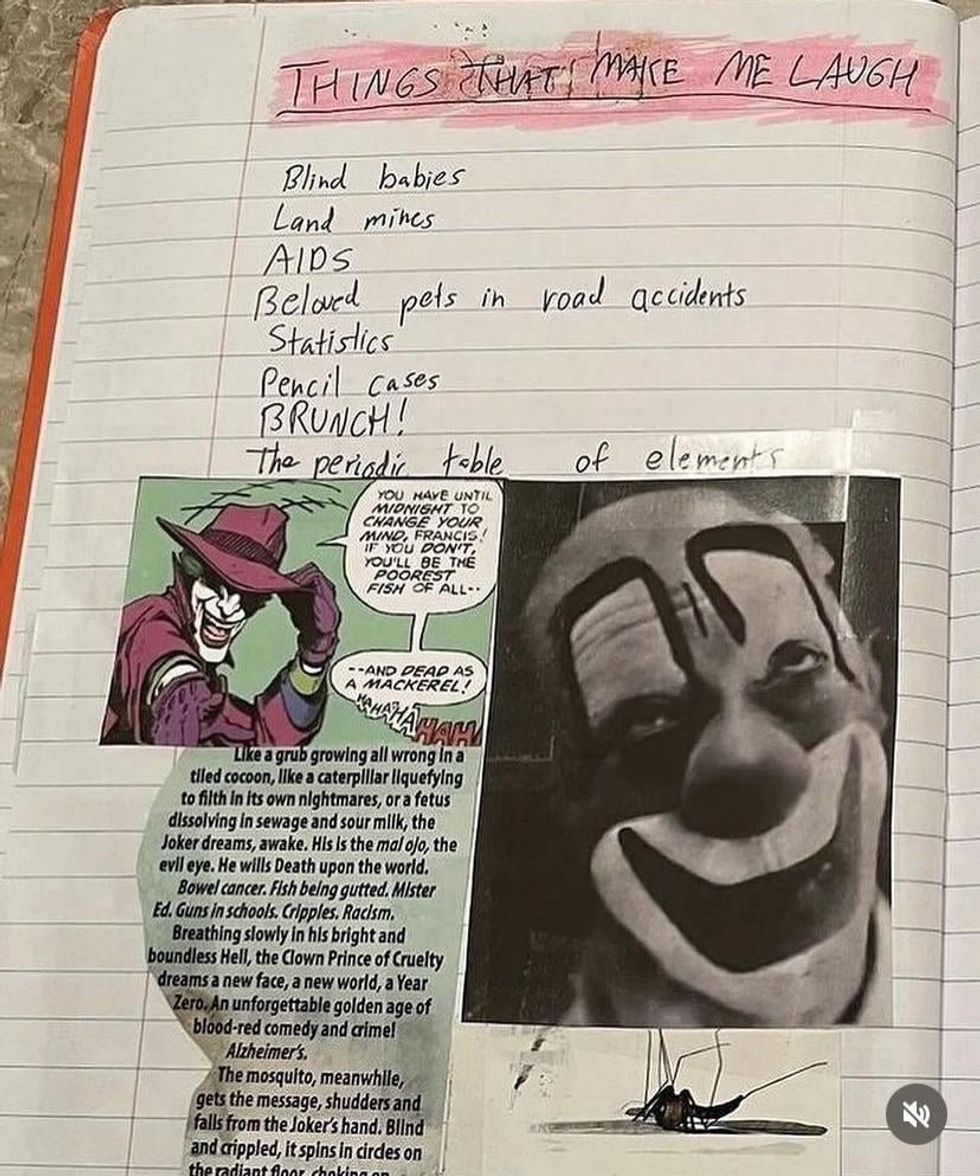 THINGS THAT MAKE ME LAUGH
Blind babies
Land mines
AIDS
Beloved pets in road accidents
Statistics
Pencil cases
BRUNCH!
The periodic table of elements
YOU HAVE UNTIL
MIDNIGHT TO
CHANGE YOUR
MIND, FRANCIS!
IF YOU DON'T,
YOU'LL BE THE
POOREST
FISH OF ALL--
--AND DEAD AS
A MACKEREL!
HAHAHAHAH
Like a grub growing all wrong in a
tiled cocoon, like a caterpillar liquefying
to filth in its own nightmares, or a fetus
dissolving in sewage and sour milk, the
Joker dreams, awake. His is the mal ojo, the
evil eye. He wills Death upon the world.
Bowel cancer. Fish being gutted. Mister
Ed. Guns in schools. Cripples. Racism.
Breathing slowly in his bright and
boundless Hell, the Clown Prince of Cruelty
dreams a new face, a new world, a Year
Zero. An unforgettable golden age of
blood-red comedy and crime!
Alzheimer's.
The mosquito, meanwhile,
gets the message, shudders and
falls from the Joker's hand. Blind
and crippled, it spins in circles on
the radiant floor, choking on